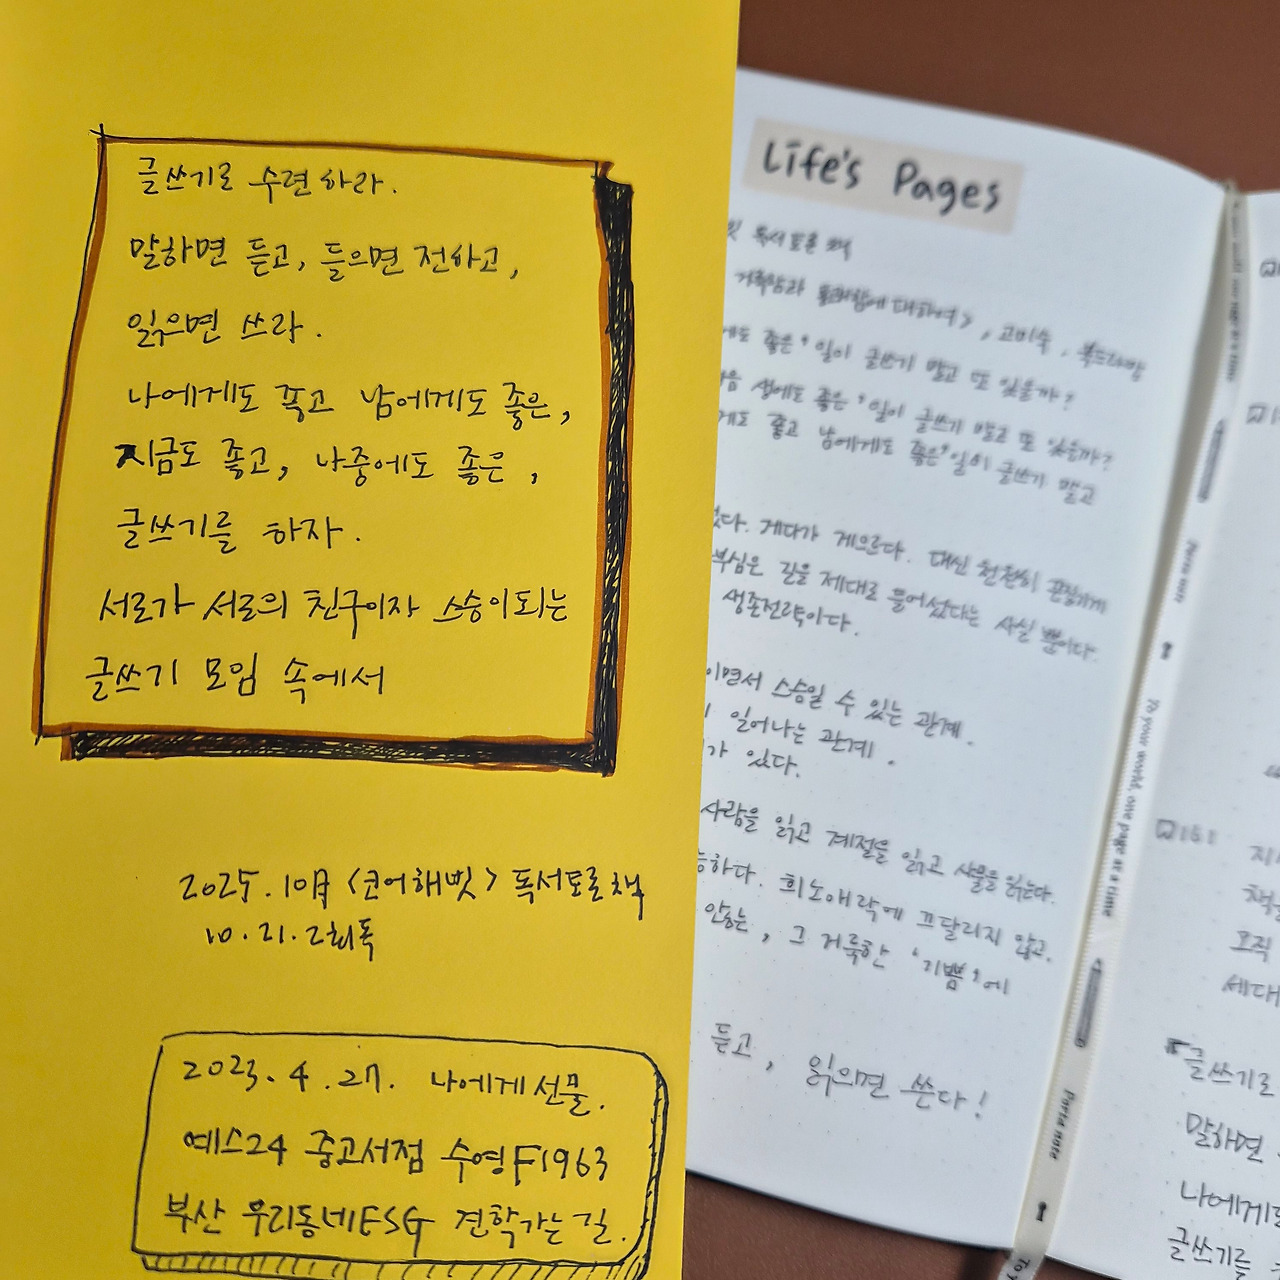 글쓰기로 수련하라.
말하면 듣고, 들으면 전하고,
읽으면 쓰라.
나에게도 좋고 남에게도 좋은,
지금도 좋고, 나중에도 좋은,
글쓰기를 하자.
서로가 서로의 친구이자 스승이되는
글쓰기 모임 속에서
2025. 10月 <코어해빗> 독서토론책
10. 21. 2회독
2023. 4. 27. 나에게 선물.
예스24 중고서점 수영F1963
부산 우리동네ESG 견학가는 길.
Life's Pages
독서토론 책
거룩함과 대하여>, 고미숙, 북드라망
에도 좋은' 일이 글쓰기 말고 또 있을까?
음 생에도 좋은' 일이 글쓰기 말고 또 있을까?
게도 좋고 남에게도 좋은' 일이 글쓰기 말고
었다. 게다가 게으르다. 대신 천천히 끈질기게
부심은 길을 제대로 들어섰다는 사실 뿐이다.
생존전략이다.
이면서 스승일 수 있는 관계.
일어나는 관계.
가 있다.
사람을 읽고 계절을 읽고 사물을 읽는다.
능하다. 희노애락에 끄달리지 않고.
안하는, 그 거룩한 '기쁨'에
듣고, 읽으면 쓴다!
To your world, one page at a time
Parta note
161
책
오직
세대
글쓰기로
말하면
나에게도
글쓰기를